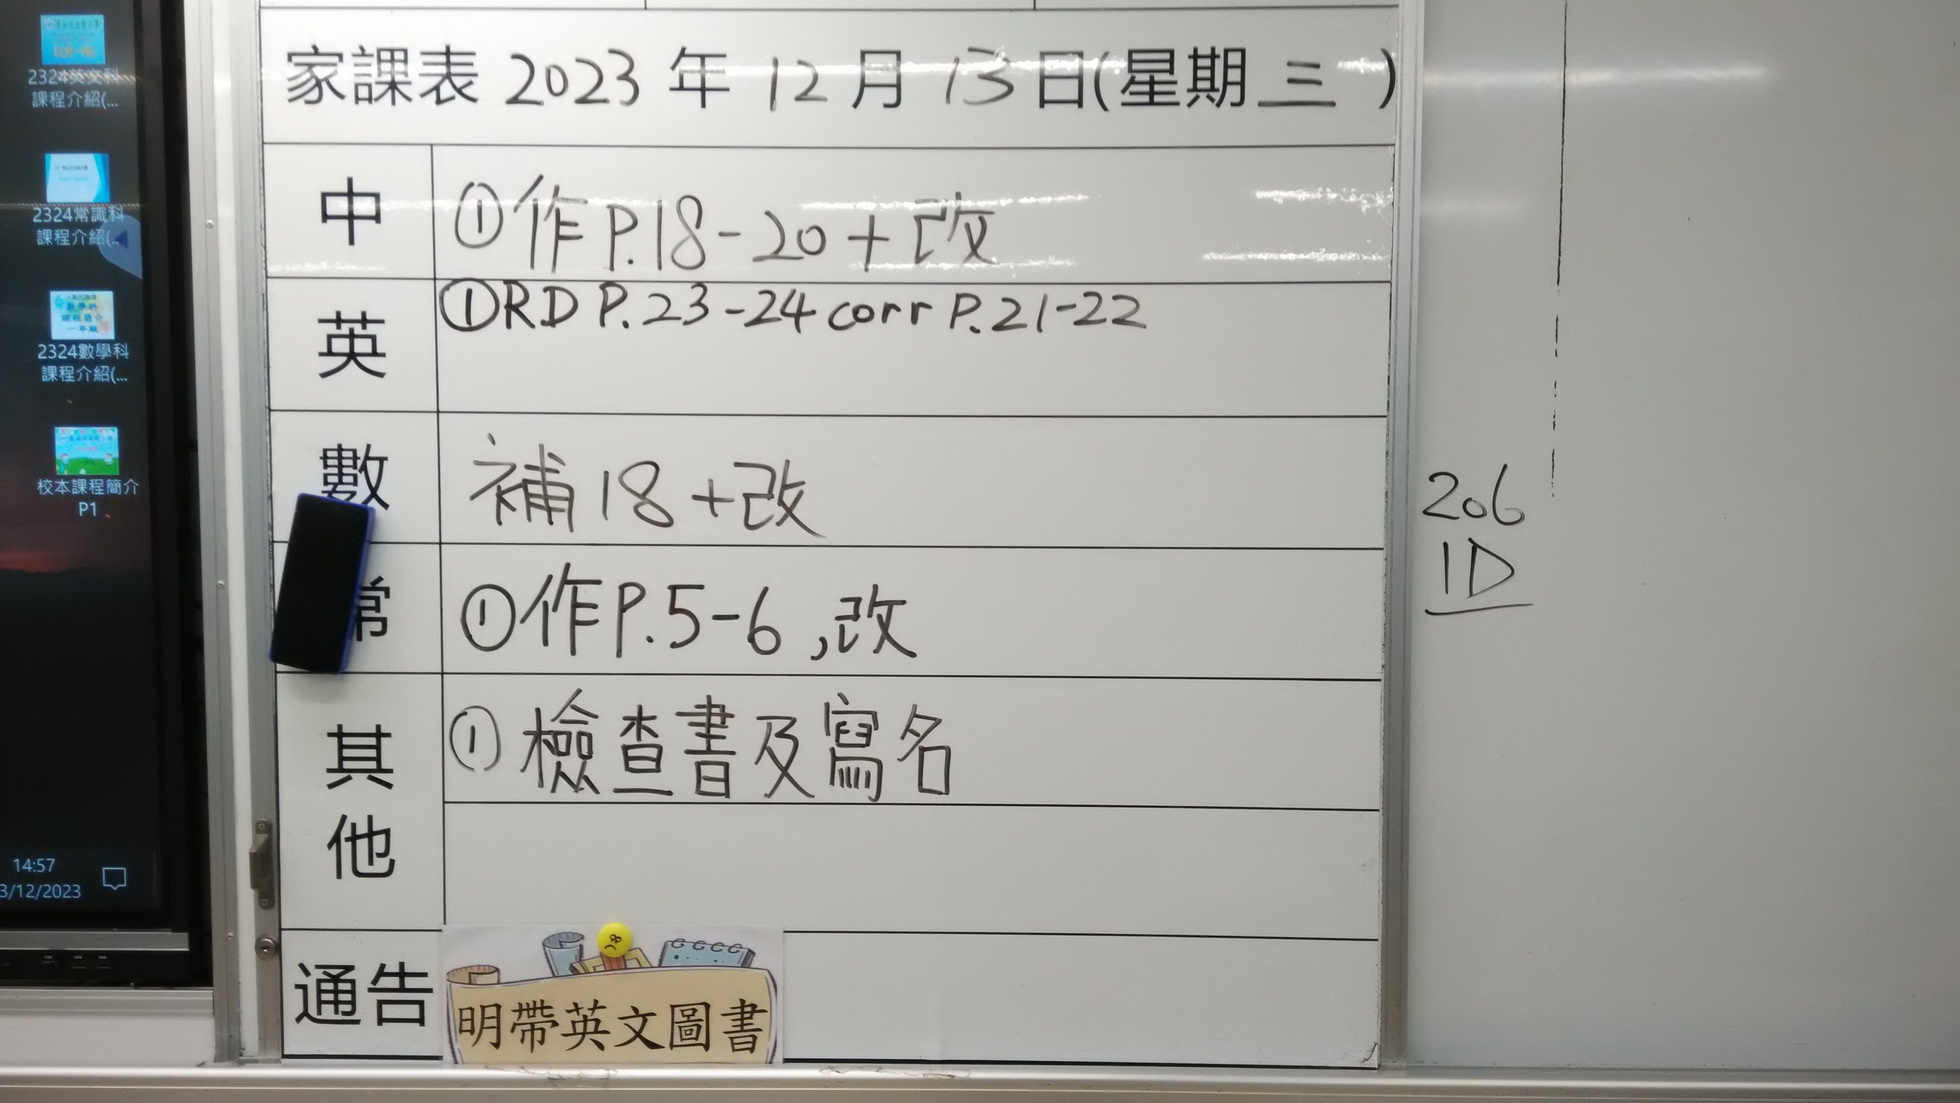 2324英文科
課程介紹(...
2324常識科
課程介紹(...
2324數學科
課程介紹(...
校本課程簡介
P1
14:57
3/12/2023
家課表 2023 年 12 月 13 日(星期 三 )
中 ①作P.18-20+改
英 ①RD P.23-24 corr P.21-22
數 補18+改
常 ①作P.5-6,改
其他 ①檢查書及寫名
通告 明帶英文圖書
206
1D